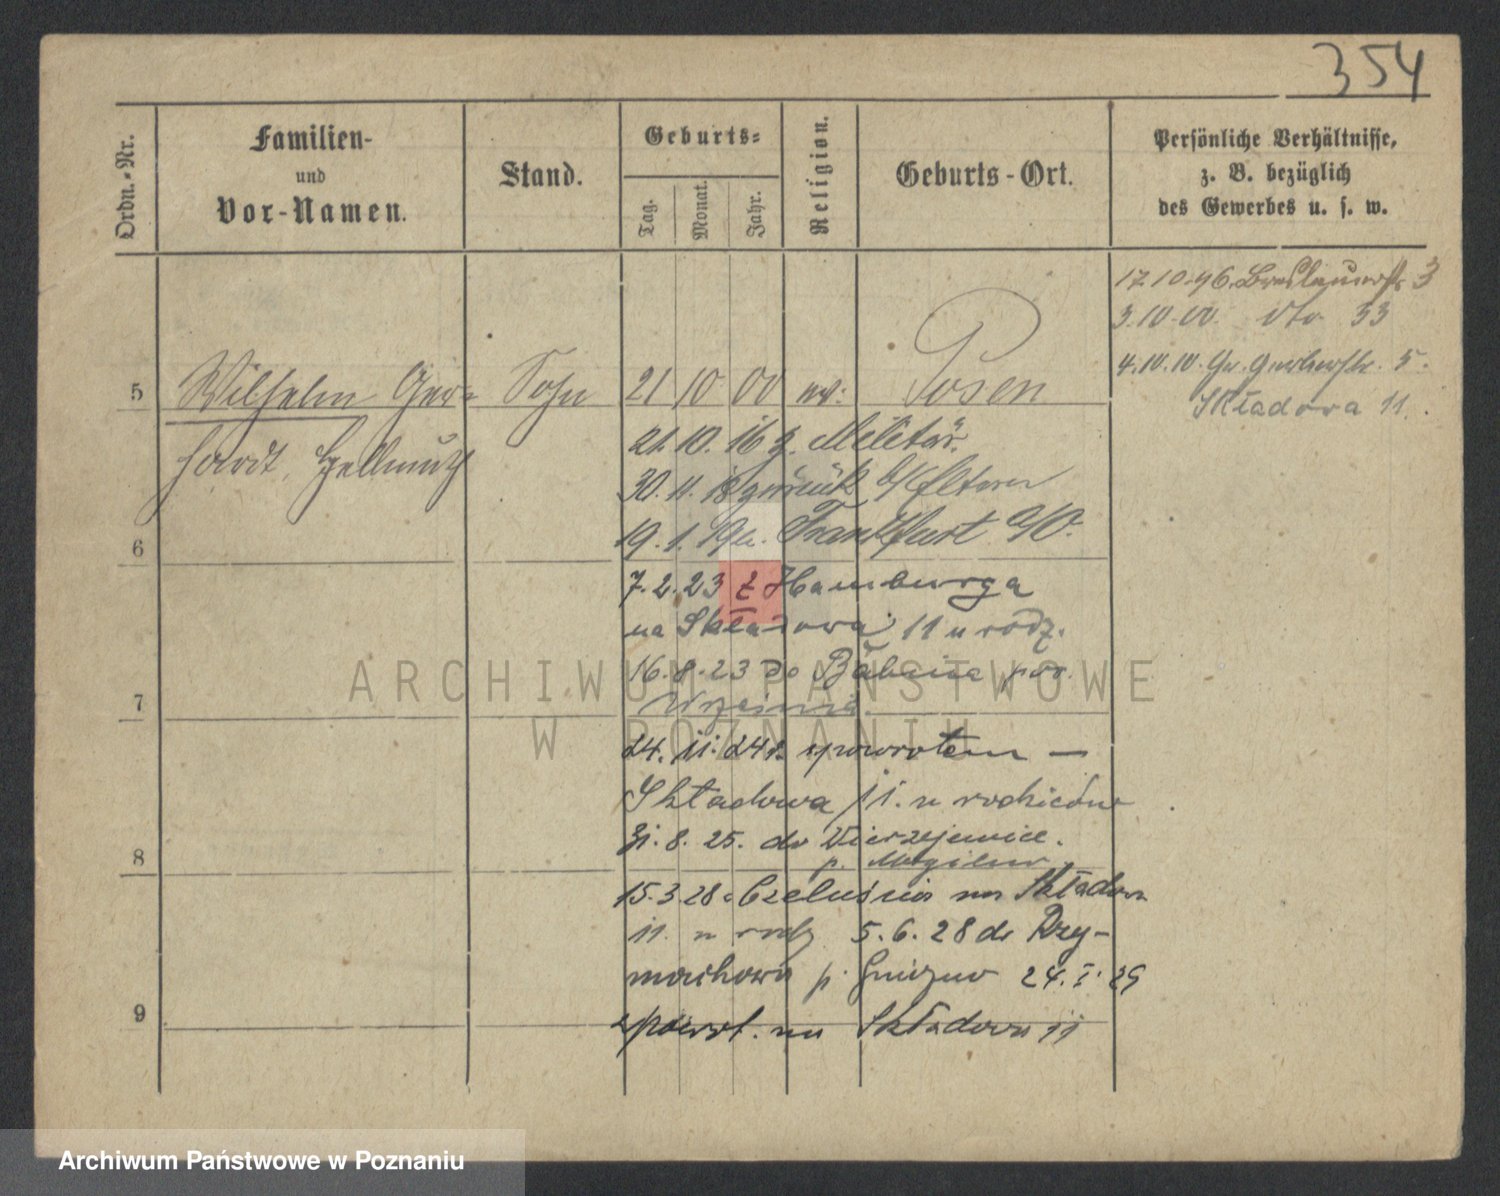 354
Ordn.-Nr.
Familien-
und
Vor-Namen.
Stand.
Geburts-
Tag.
Monat.
Jahr.
Religion.
Geburts-Ort.
Persönliche Verhältnisse,
z. B. bezüglich
des Gewerbes u. s. w.
17.10.96. Breslauerstr 3
3.10.00. dto 33
4.10.10. Gr. Gerberstr. 5.
Składowa 11.
5 Wilhelm Ger= Sohn 21 10 00 ev: Posen
hardt, Hellmuth
21.10.16 z. Militär.
30.11.18 zurück b/Eltern
6 19.1.19 n. Frankfurt a/O.
7.2.23 z Hamburga
na Składowa 11 u rodz.
16.8.23 do pow.
7 Września.
24.11.24 r. spowrotem —
Składowa 11. u rodziców
31.8.25. do Wierzejewice.
8 p. Mogilno
15.3.28 z Czeluścina na Składowa
11. u rodz 5.6.28 do Rzy-
machowa p. Gniezno 24.I.29
9 zpowrt. na Składowa 11
ARCHIWUM PAŃSTWOWE
W POZNANIU
Archiwum Państwowe w Poznaniu